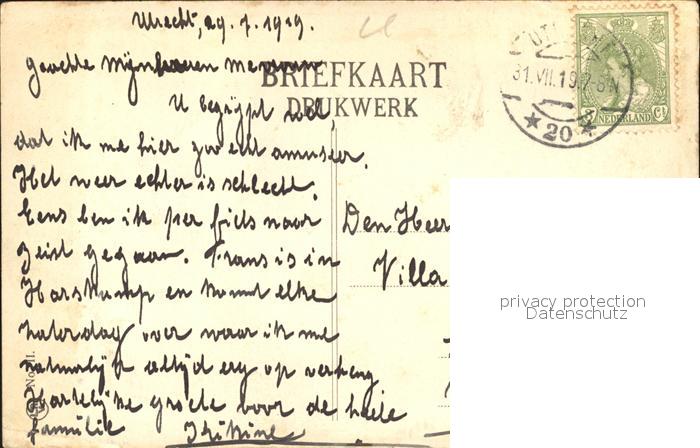 Utrecht, 29.7.1919.
Geachte Mijnheer en Mevrouw
BRIEFKAART
DRUKWERK
U begrijpt wel,
dat ik me hier zoo echt amuseer.
Het weer echter is slecht.
Eens ben ik per fiets naar
Zeist gegaan. Frans is in
Harskamp en komt elke
zaterdag over waar ik me
natuurlijk altijd erg op verheug
Hartelijke groete voor de heele
familie
Den Heer
Villa
31.VII.19
20
NEDERLAND
3 Ct
No. II.
privacy protection
Datenschutz